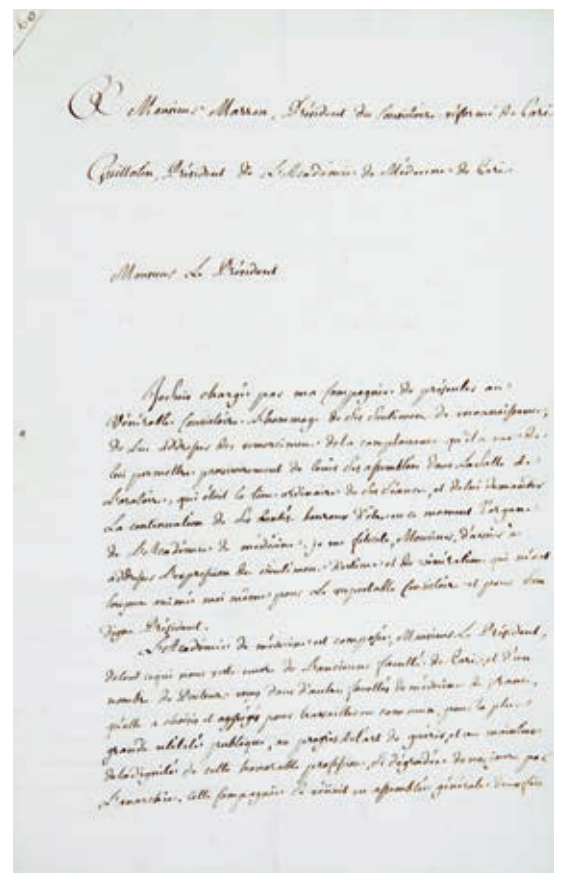 60
A Monsieur Marron, Président du Consistoire réformé de Paris
Guillotin, Président de L'Académie de Médecine de Paris.
Monsieur Le Président
Je suis chargé par ma Compagnie de présenter au
Vénérable Consistoire l'hommage de Ses Sentimens de reconnaissance,
de Lui addresser des remercimens de la complaisance qu'il a eue de
lui permettre provisoirement de tenir Ses assemblées dans La Salle de
L'oratoire, qui étoit le lieu ordinaire de Ses Séances, et de lui demander
La continuation de Ses bontés. heureux d'être en ce moment l'organe
de L'Académie de médecine, je me félicite, Monsieur, d'avoir à
addresser L'expression des Sentimens d'estime et de vénération qui m'ont
toujours animé moi même pour Le respectable Consistoire et pour Son
digne Président.
L'Académie de médecine est composée, Monsieur Le Président,
de tout ce qui nous reste encore de L'ancienne faculté de Paris, et d'un
nombre de Docteurs venus d'autres facultés de médecine de France,
qu'elle a choisis et aggrégés pour travailler en commun, pour la plus
grande utilité publique, au progrès de L'art de guérir, et au maintien
de la dignité de cette honorable profession, Si dégradée de nos jours par
L'anarchie. Cette Compagnie Se réunit en assemblée générale